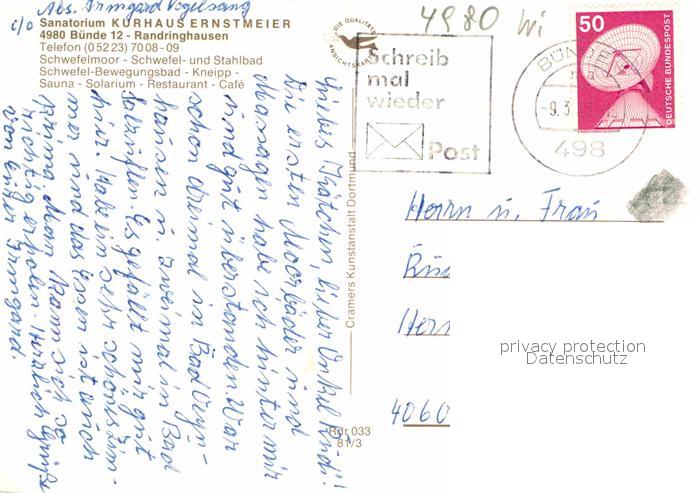 Abs. Irmgard Vogelsang
c/o Sanatorium KURHAUS ERNSTMEIER
4980 Bünde 12 - Randringhausen
Telefon (0 52 23) 70 08 - 09
Schwefelmoor - Schwefel- und Stahlbad
Schwefel-Bewegungsbad - Kneipp -
Sauna - Solarium - Restaurant - Café
DIE QUALITÄTS
ANSICHTSKARTE
4980 Wi
Schreib
mal
wieder
Post
BÜNDE
-9.3.
498
50
DEUTSCHE BUNDESPOST
ERDEFUNKSTELLE
Liebes Kätchen, lieber Onkel Rudi!
Die ersten Moorbäder und
Massagen habe ich hinter mir
und gut überstanden. War
schon dreimal in Bad Oeyn-
hausen u. zweimal in Bad
Es gefällt mir gut
hier. Habe ein sehr schönes Zim-
mer und das Essen ist auch
prima. Man kann sich so
richtig erholen. Herzlich grüßt
von Eurer Irmgard.
Cramers Kunstanstalt Dortmund
Rdr 033
81/3
Herrn u. Frau
Herr
4060
privacy protection
Datenschutz